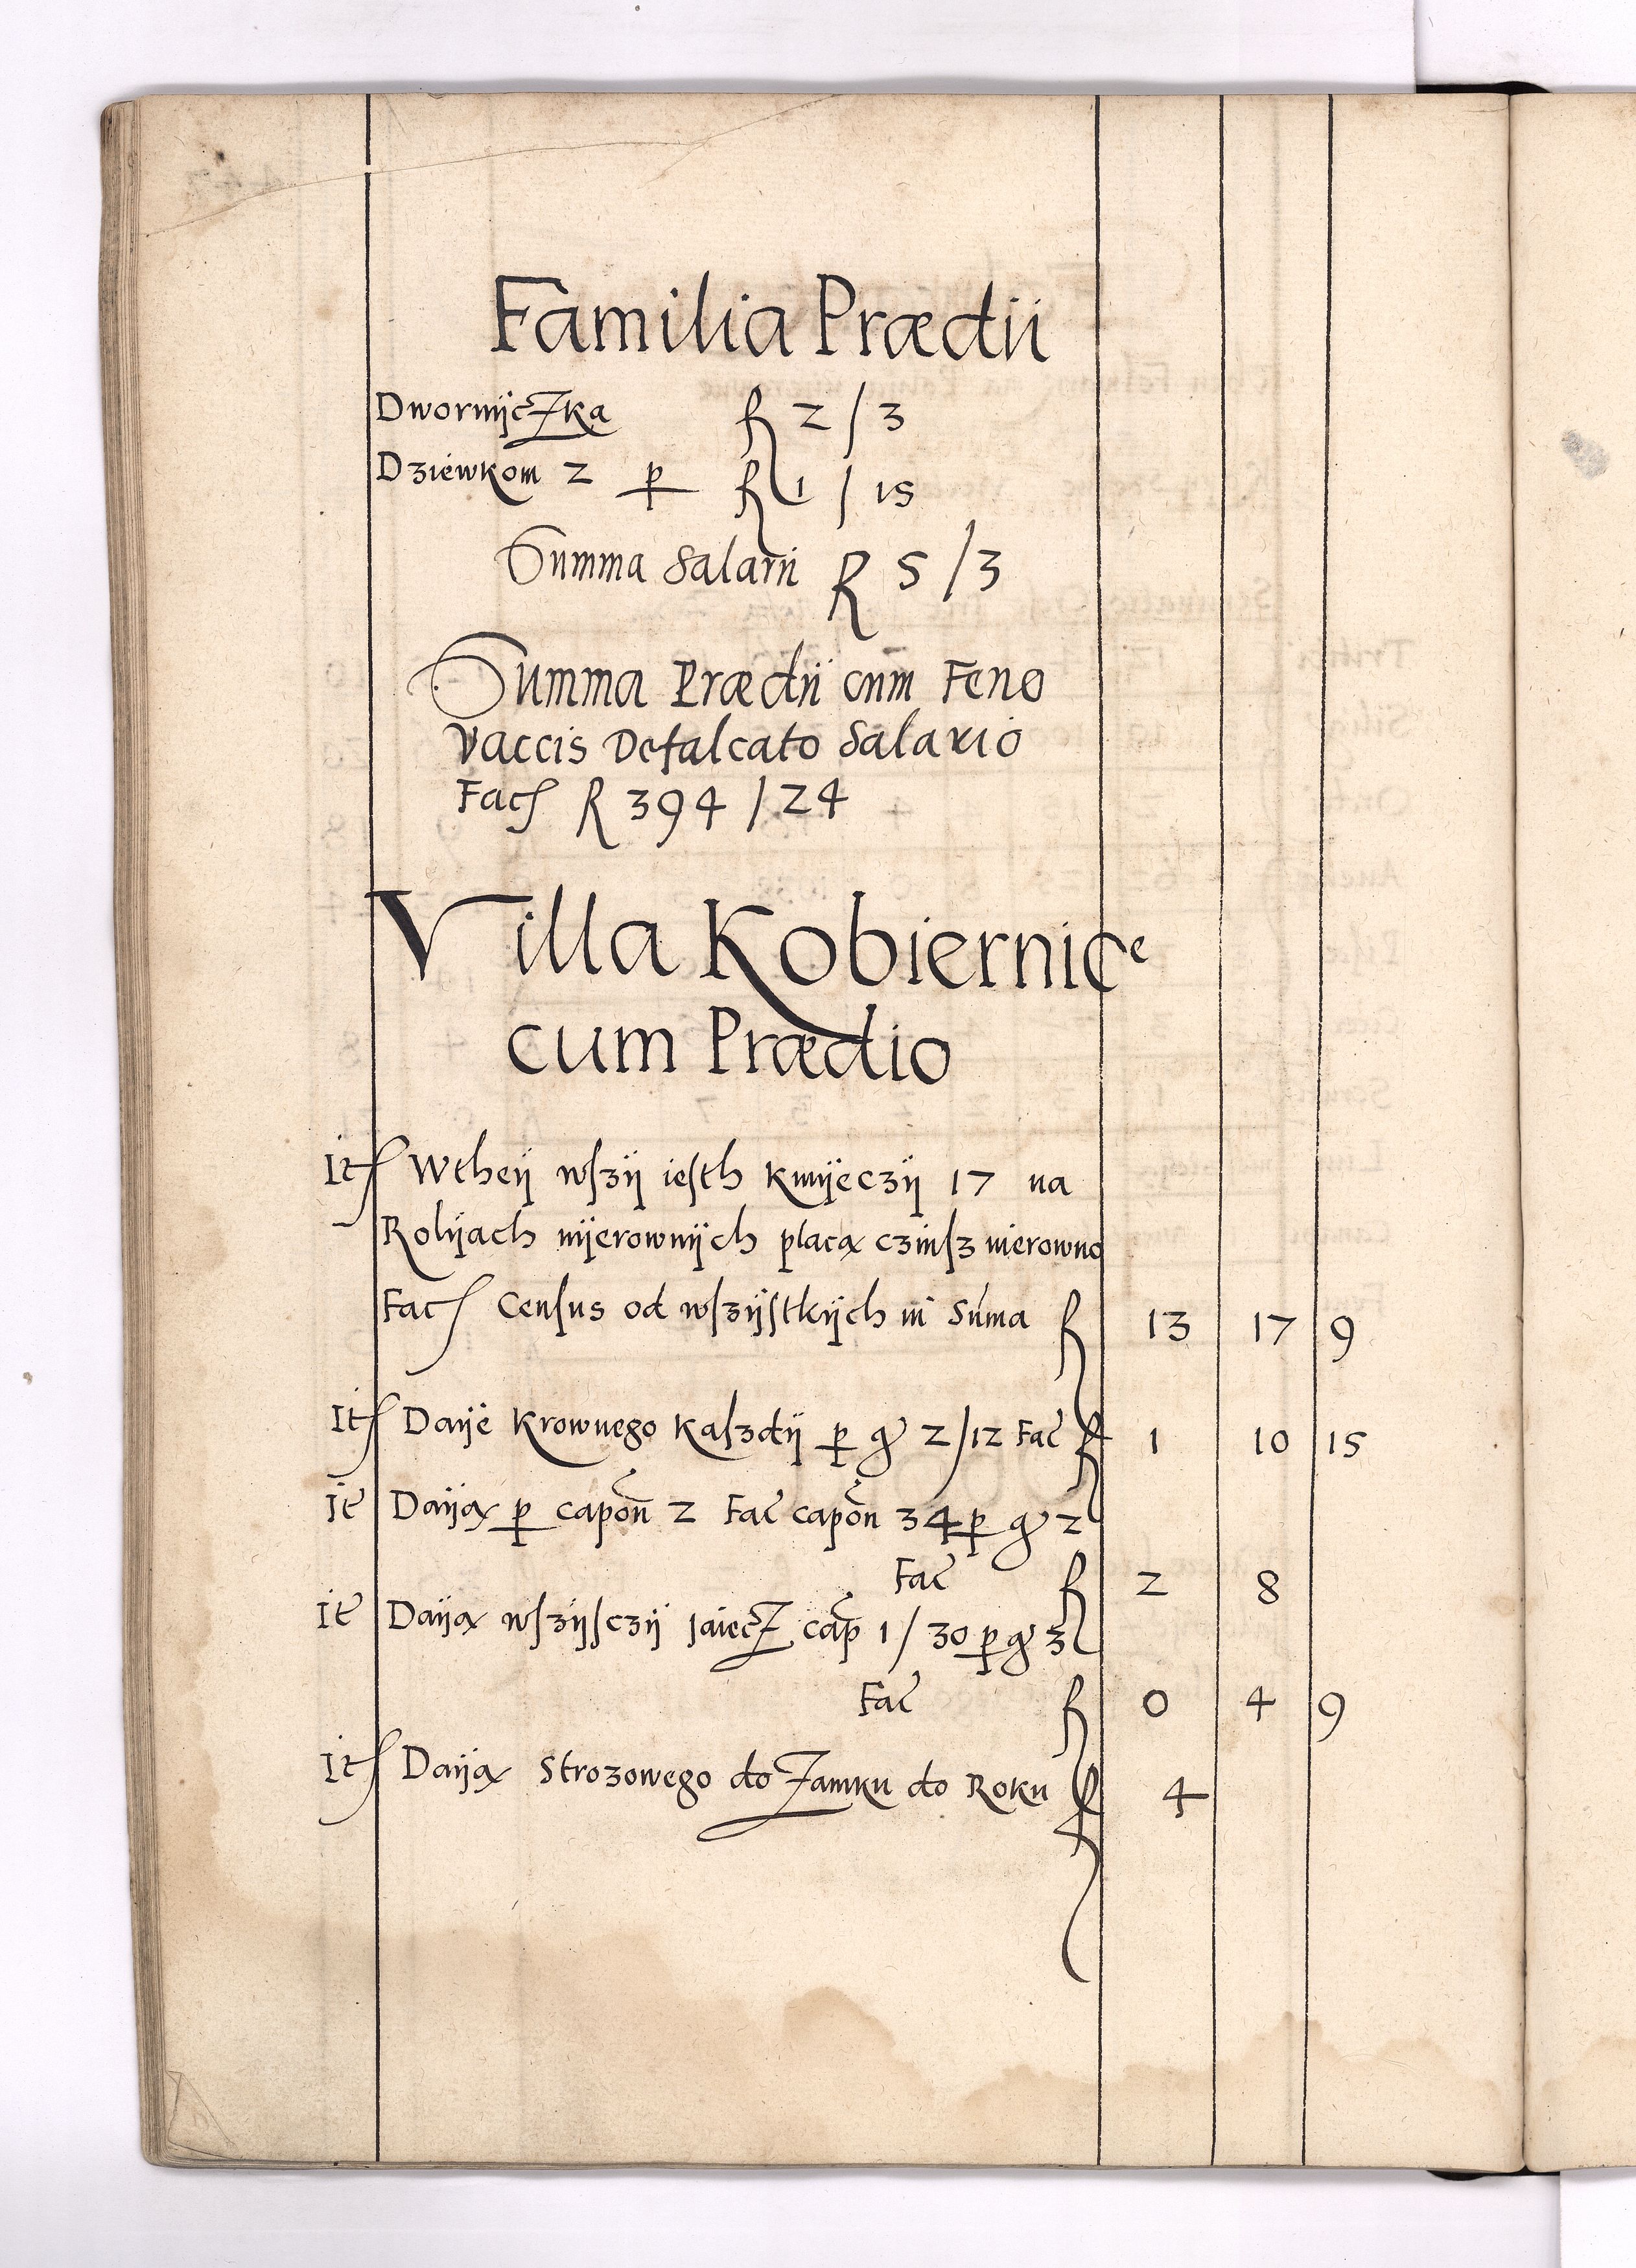 Familia Prædii
DwornÿcZka ƒ 2 / 3
Dziéwkom 2 p ƒ 1 / 15
Summa Salarii ƒ 5 / 3
Summa Prædii cum Feno
vaccis Defalcato Salario
Facƒ ƒ 394 / 24
Villa Kobiernicᵉ
cum Prædio
Itƒ Wtheÿ wſzÿ ieſth Kmÿeczÿ 17 na
Rolÿach nÿerownÿch placą czinſz nierowno
Facƒ Cenſus od wſzÿſtkÿch in Sum̃a ƒ 13 17 9
Itƒ Daÿe Krownego Kaſzdÿ p gr 2/12 Fac̃ ƒ 1 10 15
It̃ Daÿą p capoñ 2 Fac̃ capoñ 34 p gr 2
Fac̃ ƒ 2 8
It̃ Daÿą wſzÿſczÿ JaiecZ cap̃ 1 / 30 p gr 3
Fac̃ ƒ 0 4 9
Itƒ Daÿą Strozowego do Zamku do Roku ƒ 4